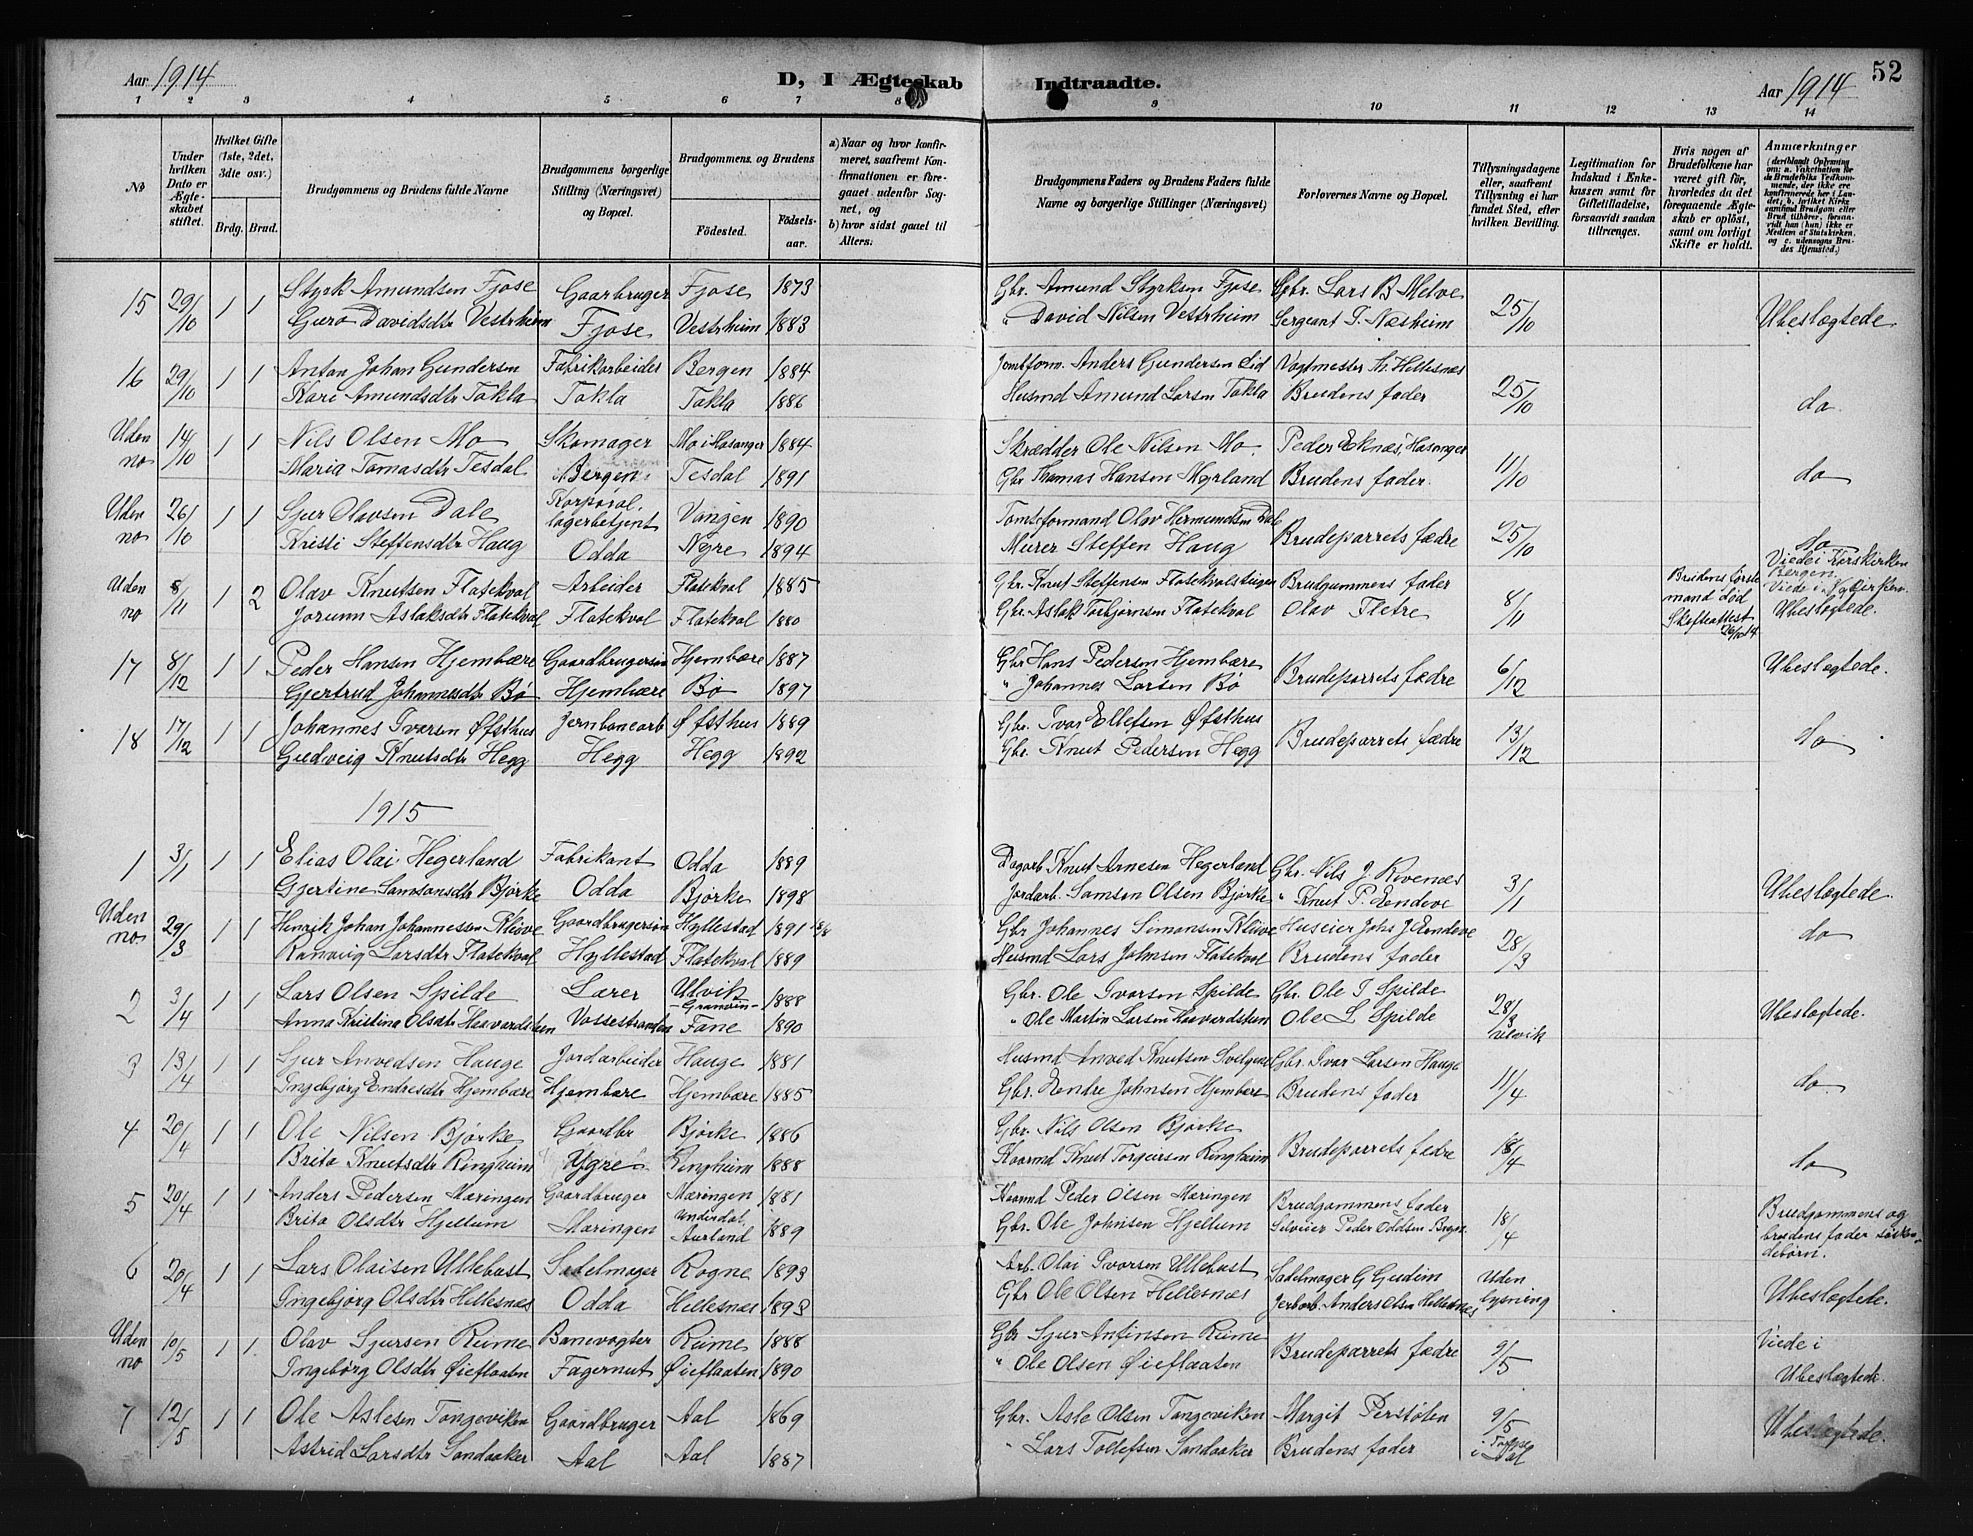 Aar 1914 D, I Ægteskab Indtraadte. Aar 1914 52
1 2 3 4 5 6 7 8 9 10 11 12 13 14
No
Under hvilken Dato er Ægteskabet stiftet.
Hvilket Gifte (1ste, 2det, 3die osv.)
Brdg. Brud.
Brudgommens og Brudens fulde Navne
Brudgommens borgerlige Stilling (Næringsvei) og Bopæl.
Brudgommens og Brudens
Fødested. Fødselsaar.
a) Naar og hvor konfirmeret, saafremt Konfirmationen er foregaaet udenfor Sognet, og
b) hvor sidst gaaet til Alters.
Brudgommens Faders og Brudens Faders fulde Navne og borgerlige Stillinger (Næringsvei)
Forlovernes Navne og Bopæl.
Tillysningsdagene eller, saafremt Tillysning ei har fundet Sted, efter hvilken Bevilling.
Legitimation for Indskud i Enkekassen samt for Giftetilladelse, forsaavidt saadan tiltrænges.
Hvis nogen af Brudefolkene har været gift før, hvorledes da det foregaaende Ægteskab er opløst, samt om lovligt Skifte er holdt.
Anmærkninger
15 29/10 1 1 Styrk Amundsen Fjose Gaarbruger Fjose 1873 Gbr. Amund Styrksen Fjose Gbr. Lars B Melve 25/10 Ubeslægtede
Guro Davidsdtr Vestrheim Fjose Vestrheim 1883 " David Nilsen Vestrheim Sergeant T. Næsheim
16 29/10 1 1 Anton Johan Gundersen Fabrikarbeider Bergen 1884 Anders Gundersen Lid Vagtmester Th. Hellesnæs 25/10 do
Kari Amundsdtr Takla Takla Takla 1886 Husmd Amund Larsen Takla Brudens fader
Uden no 14/10 1 1 Nils Olsen Mo Skomager Mo i Hosanger 1884 Skrædder Ole Nilsen Mo. Peder Eknæs, Hosanger 11/10 do
Maria Tomasdtr Tesdal Bergen Tesdal 1891 Gbr Thomas Hansen Myrland Brudens fader.
Uden no 26/10 1 1 Sjur Olavsen Dale Korporal, lagerbetjent Vangen 1890 Tomteformand Olav Hermundsen Dale Brudeparrets fædre 25/10 do
Kristi Steffensdtr Haug Odda Nyre 1894 Murer Steffen Haug Viede i Korskirken Bergen.
Uden no 8/11 1 2 Olav Knutsen Flatekval Arbeider Flatekval 1885 Gbr. Knut Steffensen Flatekvalstuen Brudgummens fader 8/11 Brudens første mand død Skifteattest Viede i
Jorunn Aslaksdtr Flatekval Flatekval Flatekval 1880 Gbr. Aslak Torbjørnsen Flatekval Olav Fletre Ubeslægtede.
17 8/12 1 1 Peder Hansen Hjembære Gaardbrugersøn Hjembære 1887 Gbr Hans Pedersen Hjembære Brudeparrets fædre 6/12 Ubeslægtede.
Gjertrud Johannesdtr Bø Hjembære Bø 1897 " Johannes Larsen Bø
18 17/12 1 1 Johannes Iversen Øfsthus Jernbanearb Øfsthus 1889 Gbr. Ivar Ellefsen Øfsthus Brudeparrets fædre 13/12 do
Gudveig Knutsdtr Hegg Hegg Hegg 1892 Gbr. Knut Pedersen Hegg
1915
1 3/1 1 1 Elias Olai Hegerland Fabrikant Odda 1889 Dagarb. Knut Arnesen Hegerland Gbr. Nils J. Rivenæs 3/1 Ubeslægtede.
Gjertine Samsonsdtr Bjørke Odda Bjørke 1898 Jordarb. Samson Olsen Bjørke " Knut P. Endeve
Uden no 29/3 1 1 Henrik Johan Johannessen Kleive Gaardbrugersøn Hyllestad 1891 Gbr Johannes Simonsen Kleive Huseier Johs J. Endeve 28/3 do
Ranveig Larsdtr Flatekval Hyllestad Flatekval 1889 Husmd Lars Johnsen Flatekval Brudens fader
2 3/4 1 1 Lars Olsen Spilde Lærer Ulvik Granvin 1888 Gbr. Ole Ivarsen Spilde Gbr. Ole I Spilde 28/3 Ulvik Ubeslægtede.
Anna Kristina Olsdtr Haavardstun Vossestranden Fane 1890 " Ole Martin Larsen Haavardstun Ole L Spilde
3 13/4 1 1 Sjur Anvedsen Hauge Jordarbeider Hauge 1881 Husmd Anved Knutsen Gbr. Ivar Larsen Hauge 11/4 do
Ingebjørg Endresdtr Hjembære Hjembære Hjembære 1885 Gbr. Endre Johnsen Hjembære Brudens fader
4 20/4 1 1 Ole Nilsen Bjørke Gaardbr Bjørke 1886 Gbr. Nils Olsen Bjørke Brudeparrets fædre 18/4 do
Brita Knutsdtr Ringheim Ygre Ringheim 1888 Kaarmd Knut Torgeirsen Ringheim
5 20/4 1 1 Anders Pedersen Mæringen Gaardbruger Mæringen 1881 Kaarmd Peder Olsen Mæringen Brudgommens fader 18/4 Brudgommens og brudens fader søskendebørn.
Brita Olsdtr Hjellum Mæringen Underdal Aurland 1889 Gbr. Ole Johnsen Hjellum Selveier Peder Oddsen
6 20/4 1 1 Lars Olaisen Ullebust Sadelmager Rogne 1893 Arb. Olai Ivarsen Ullebust Sadelmager G Gudim Uden lysning Ubeslægtede.
Ingebjørg Olsdtr Hellesnæs Odda Hellesnæs 1893 Gbr Ole Olsen Hellesnæs Jerbarb. Anders Olsen Hellesnæs
Uden no 10/5 1 1 Olav Sjursen Rume Banevogter Rume 1888 Gbr Sjur Anfinsen Rume Brudeparrets fædre 9/5 Viede i
Ingebørg Olsdtr Øieflaaten Fagernut Øieflaaten 1890 " Ole Olsen Øieflaaten Ubeslægtede.
7 12/5 1 1 Ole Aslesen Tangeviken Gaardbruger Aal 1869 Gbr. Asle Olsen Tangeviken Margit Perstølen 9/5 i Aal Ubeslægtede.
Astrid Larsdtr Sandaaker Aal Aal 1887 " Lars Tollefsen Sandaaker Brudens fader